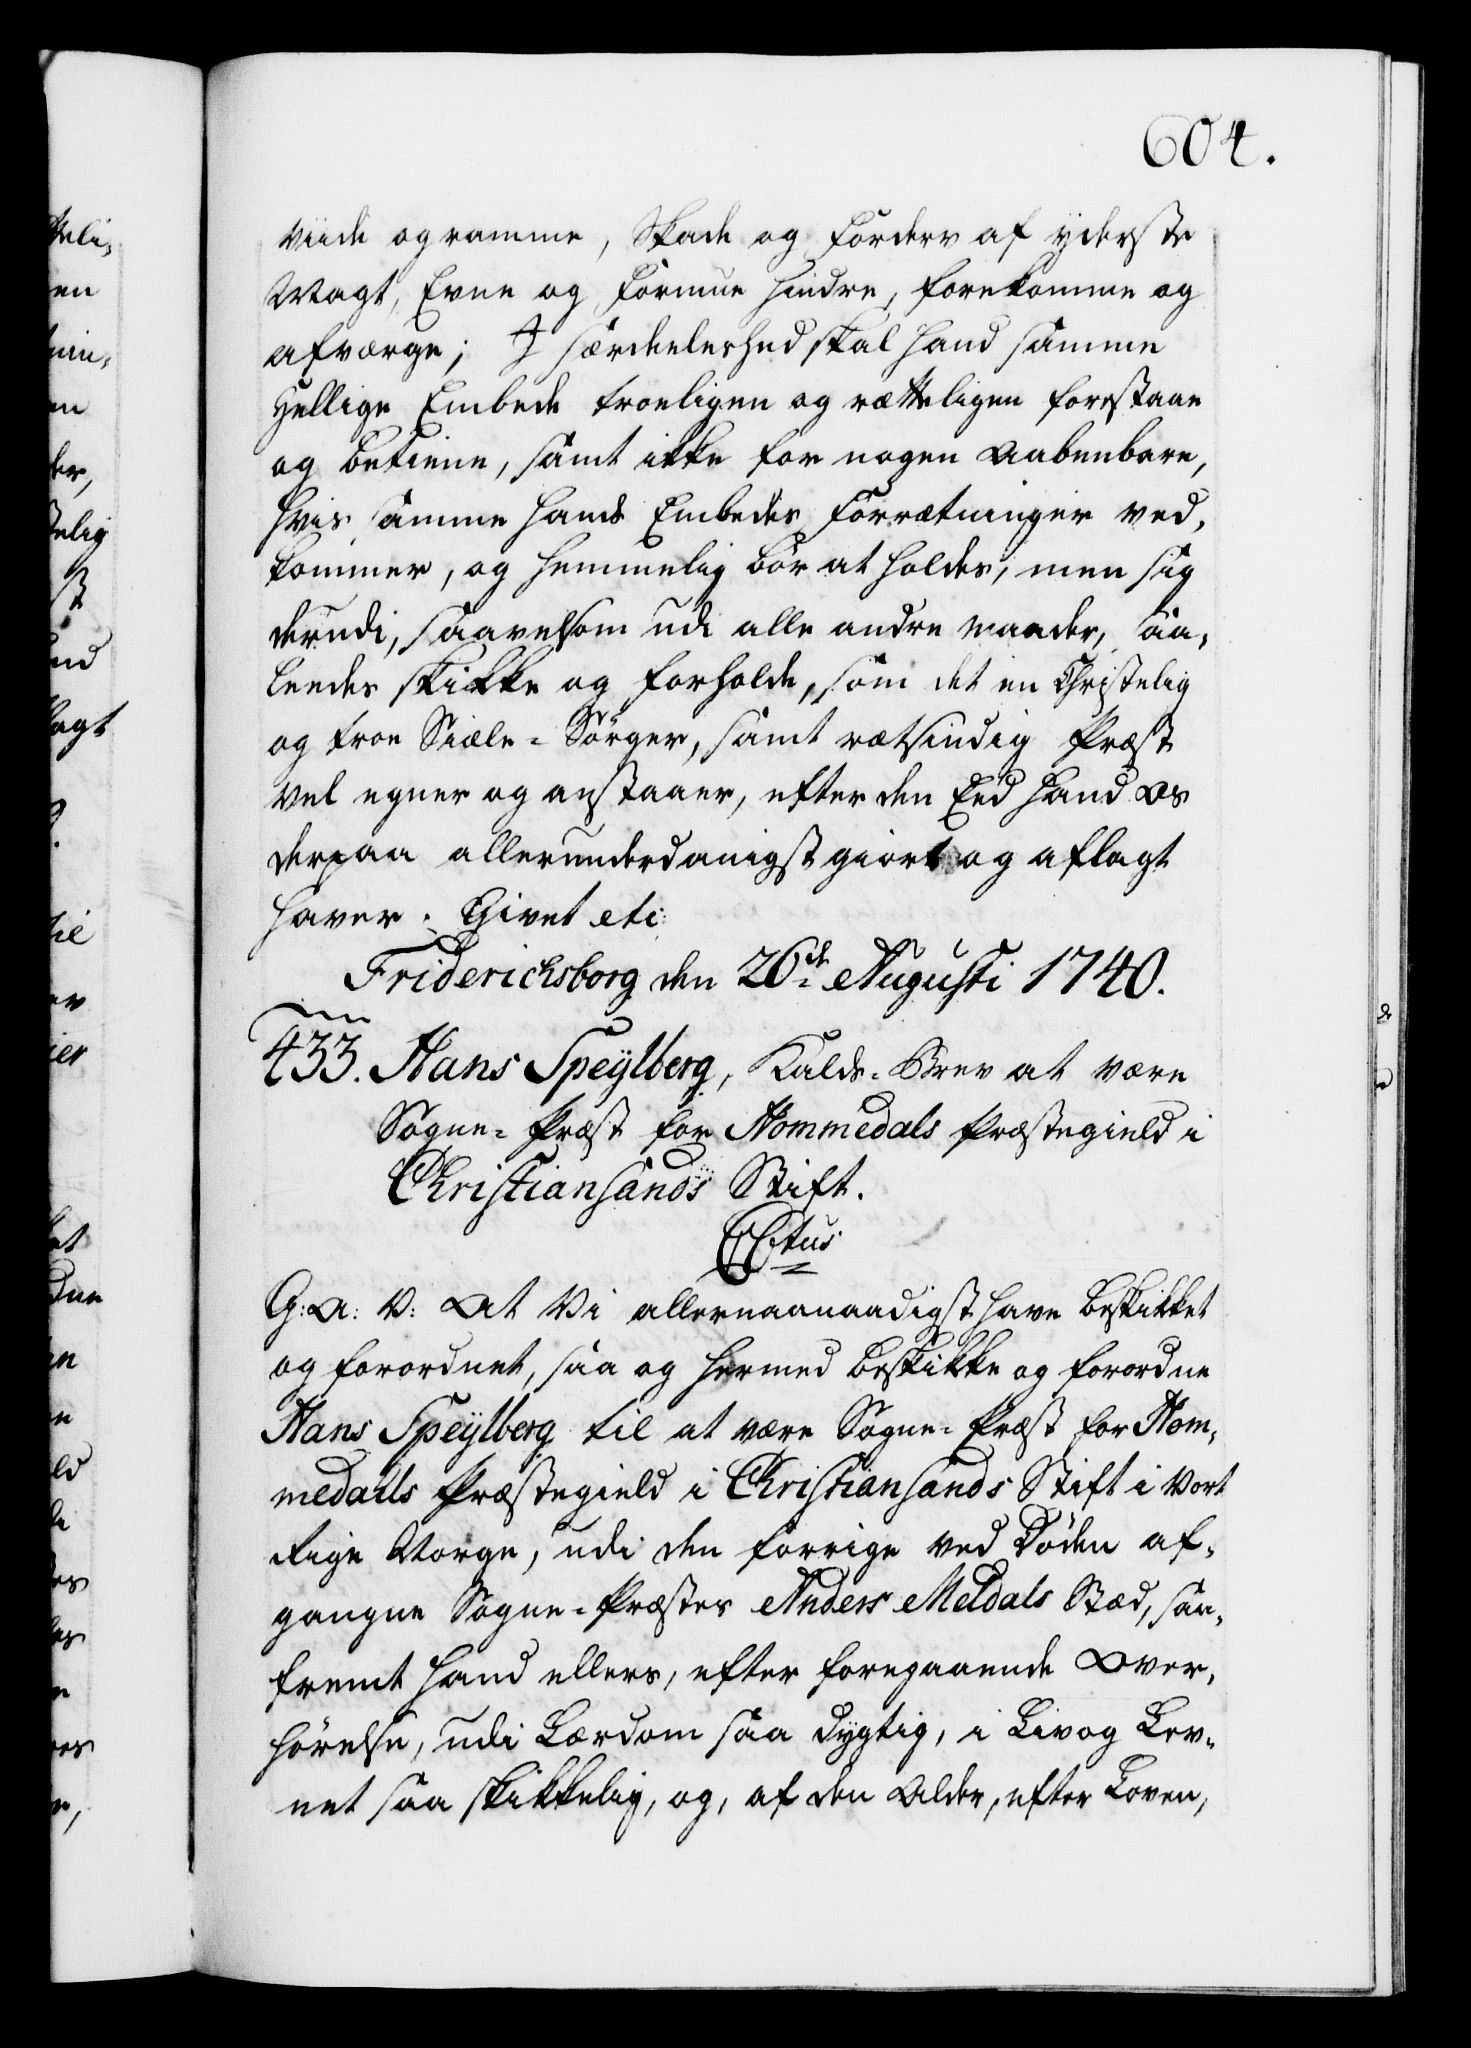 604.
viide og ramme, Skade og Forderv af yderste
Magt, Evne og Formue hindre, forekomme og
afværge; J særdeeleshed skal hand samme
Hellige Embede troeligen og rætteligen forestaae
og betiene, samt ikke for nogen Aabenbare,
hvis samme hands Embedes Forrætninger ved,
kommer, og hemmelig bør at holdes, men sig
derudi, saavelsom udi alle andre maader, saa,
leedes skikke og forholde, som det en Christelig
og troe Siæle-Sørger, samt rætsindig Præst
vel egner og anstaaer, efter den Eed hand Os
derpaa allerunderdanigst giort og aflagt
haver. Givet etc:
Friderichsborg den 26de Augusti 1740.
433. Hans Speÿlberg, Kalds-Brev at være
Sogne-Præst for Hommedals Præstegield i
Christiansands Stift.
G: A: V: At Vi allernaanaadigst have beskikket
og forordnet, saa og hermed beskikke og forordne
Hans Speÿlberg til at være Sogne-Præst for Hom,
medalls Præstegield i Christiansands Stift i Vort
Rige Norge, udi den forrige ved Døden af,
gangne Sogne-Præstes Anders Meldals Stæd, saa,
fremt hand ellers, efter foregaaende Over,
hørelse, udi Lærdom saa dygtig, i Liv og Lev,
net saa skikkelig, og, af den Alder, efter Loven,